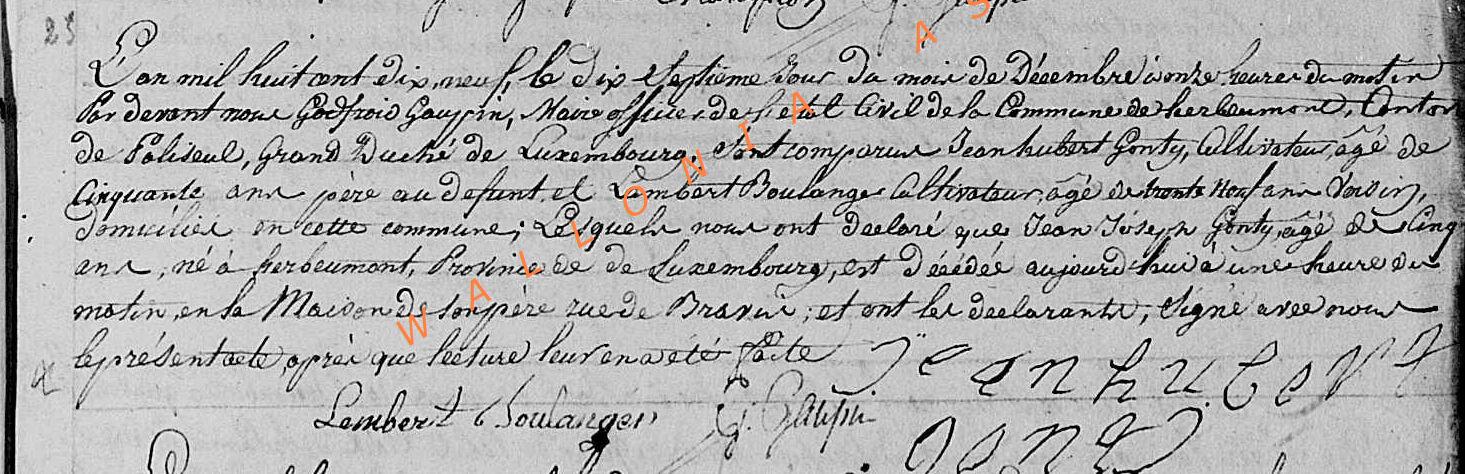 23
L'an mil huit cent dix neuf, le dix septieme Jour du mois de Décembre à onze heures du matin
Par devant nous Godfroid Gauspin, Maire officier de l'état Civil de la Commune de herbeumont, Canton
de Paliseul, Grand Duché de Luxembourg, Sont comparus Jean hubert Gonty, Cultivateur, âgé de
Cinquante ans père au defunt, et Lambert Boulanger Cultivateur, âgé de trente Neuf ans Voisin,
domiciliés en cette commune; Lesquels nous ont declaré que Jean Joseph Gonty, âgé de Cinq
ans, né à herbeumont, Province de de Luxembourg, est Décédée aujourd'hui à une heure du
matin, en la Maison de son père rue de ; et ont les declarants, Signé avec nous
le présent acte après que lecture leur en a été faite Jean hubert
Lembert Boulanger G. Gaupin
gonty
WALLONIA AS